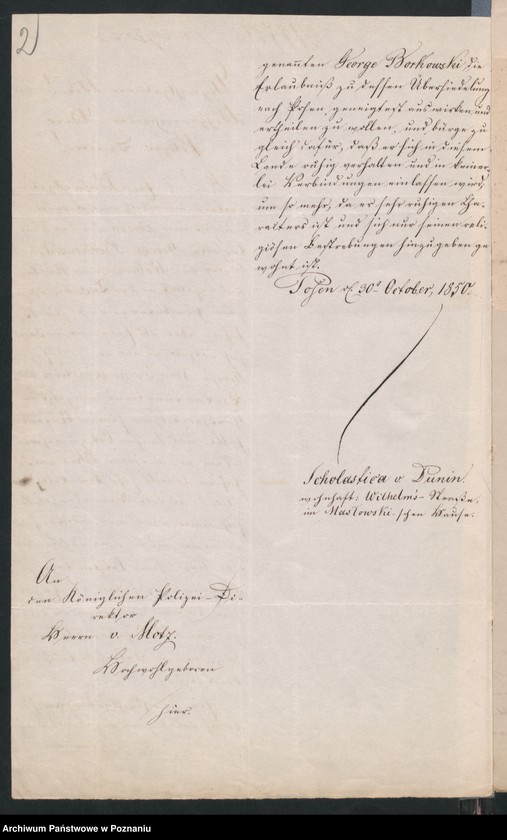 2
genannten George Borkowski die
Erlaubniß zu dessen Übersiedelung
nach Posen geneigtest auswirken und
ertheilen zu wollen, und bürge zu
gleich dafür, daß er sich in diesem
Lande ruhig verhalten und in keiner-
lei Verbindungen einlassen wird,
um so mehr, da er sehr ruhigen Cha-
rakters ist und sich nur seinen reli-
giösen Bestrebungen hinzugeben ge
wohnt ist.
Posen d. 30t October, 1850.
Scholastica v Dunin.
wohnhaft: Wilhelms-Straße.
im Masłowski-schen Hause.
An
den Königlichen Polizei-Di-
rektor
Herrn v. Motz.
Hochwohlgeboren
hier.
Archiwum Państwowe w Poznaniu